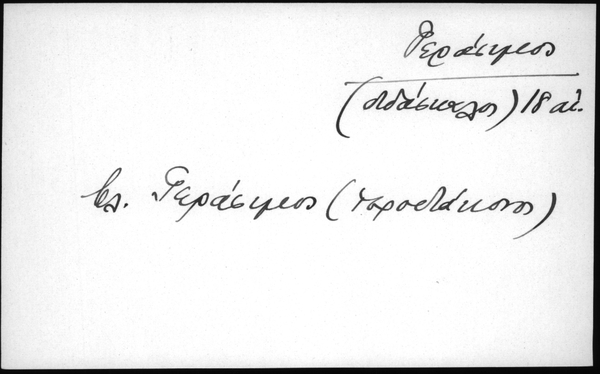 Γεράσιμος
(διδάσκαλος) 18 αἰ.
βλ. Γεράσιμος (ἱεροδιάκονος)